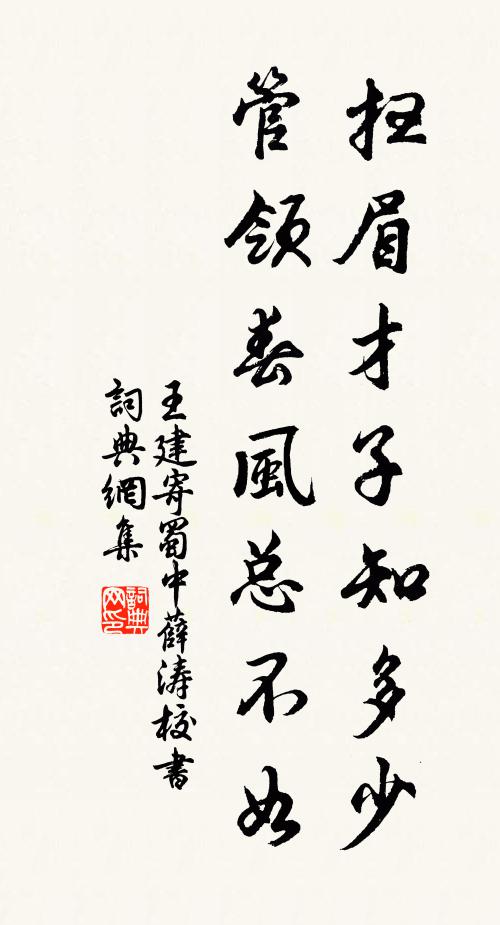 扫眉才子知多少
管领春風总不如
王建寄蜀中薛涛校書
詞典網集
詞典
网印